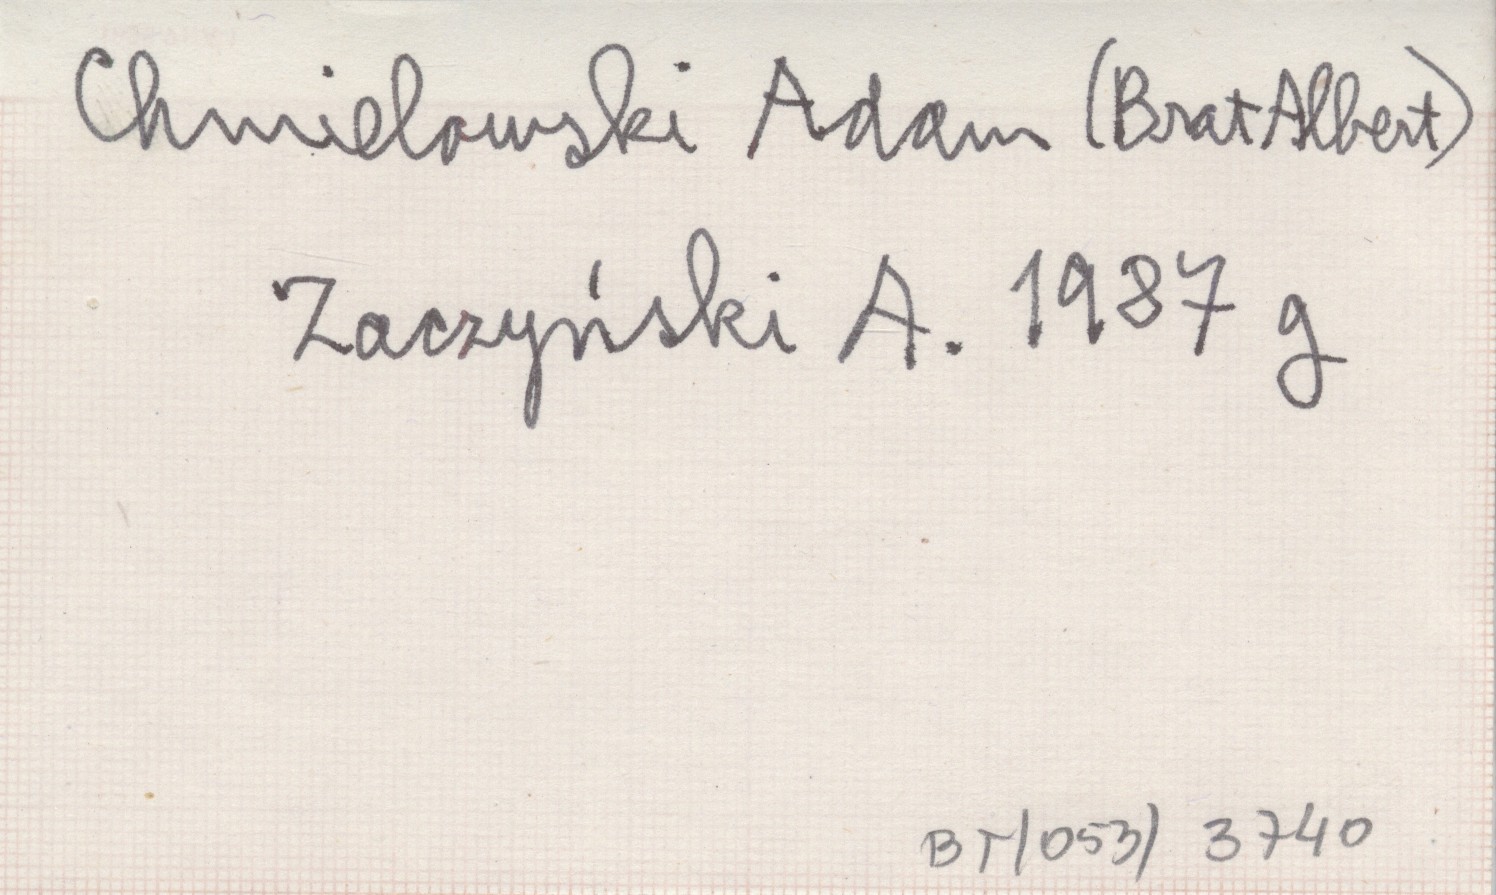 Chmielowski Adam (Brat Albert)
Zaczyński A. 1987 g
BT/053/ 3740